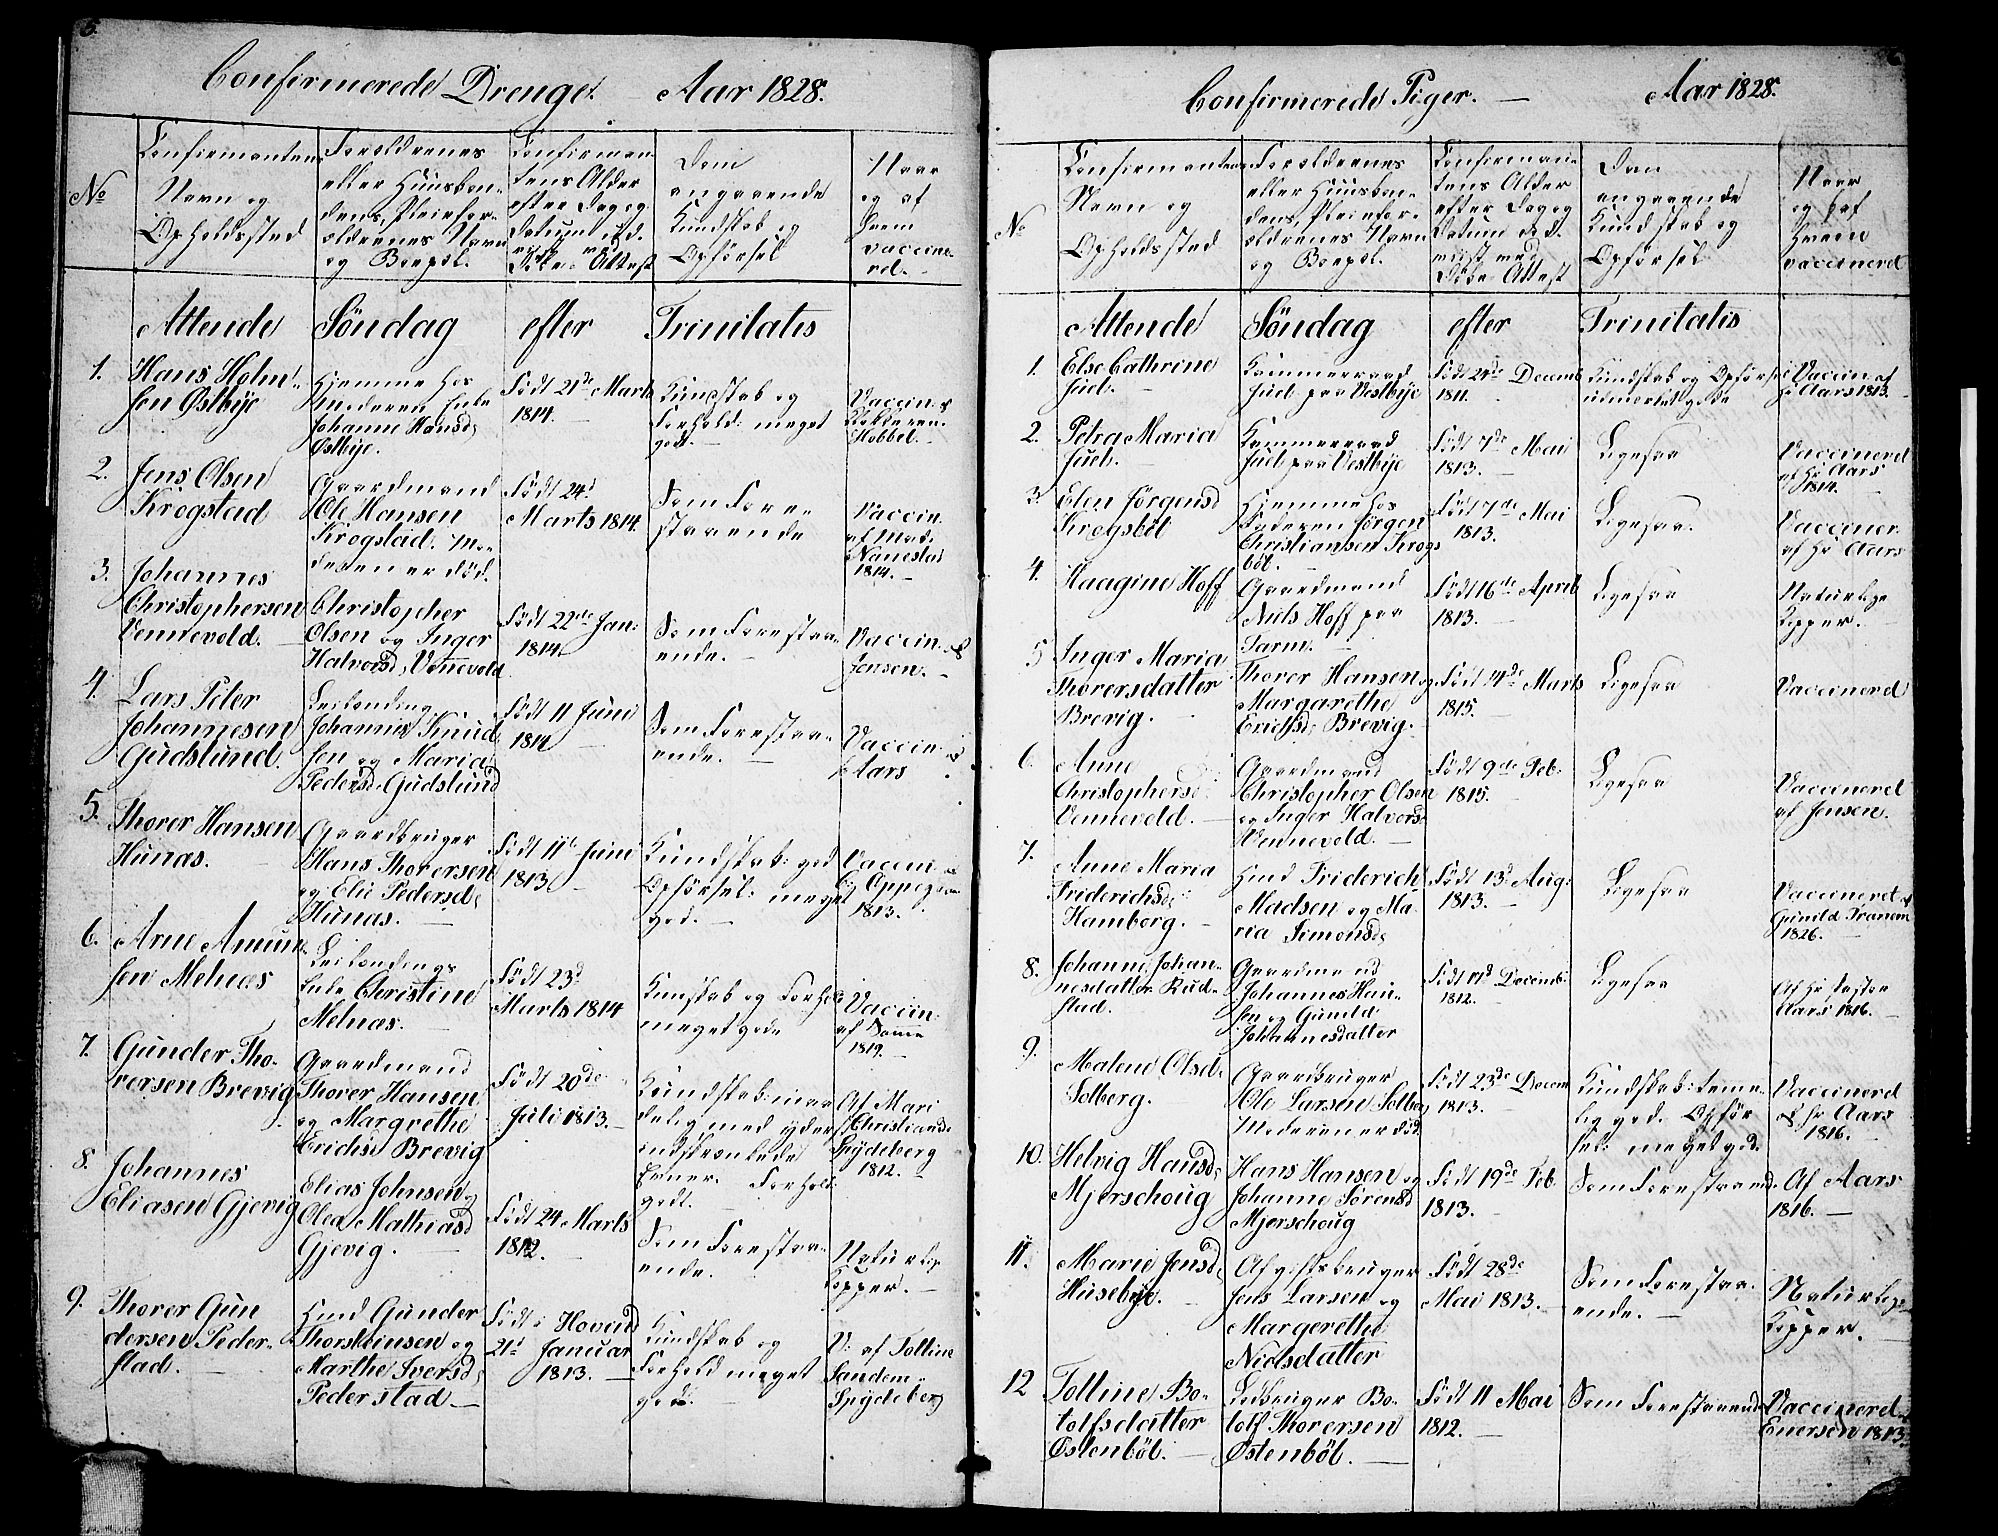 5.
Confirmerede Drenge. Aar 1828.
No
Confirmantens
Navn og
Opholdssted
Forældrenes
eller Huusbon-
dens, Pleiefor-
ældrenes Navn
og Boepæl.
Confirman-
tens Alder
efter Dag og
Datum
Døbe-Attest
angaaende
Kundskab og
Opførsel
Naar
og af
hvem
vaccine-
rd.
Attende Søndag efter Trinitatis
1.
Hans Holm-
sen Østbye
Hjemme hos
moderen Enke
Johanne Hansd:
Østbye.
Født 21de Marts
1814.
Kundskab og
Forhold: meget
godt.
Vaccin. af
Klokkeren
Hobbel.
2.
Jens Olsen
Krogstad
Gaardmand
Ole Hansen
Krogstad. Mo-
deren er død.
Født 24d
Marts 1814.
Som Fore-
staaende
Vaccin.
af Mad:
Nanestad
1814.
3.
Johannes
Christophersen
Vennevold.
Christopher
Olsen og Inger
Halvorsd: Vennevold
Født 22de Jan:
1814.
Som Forestaa-
ende.
Vaccin. af
Jensen.
4.
Lars Peter
Johannesen
Gudslund.
Leilænding
Johannes Knud-
sen og Maria
Pedersd: Gudslund
Født 11 Juni
1814
Som Forestaa-
ende.
Vaccin. af
Aars
5.
Thorer Hansen
Hunæs.
Gaardbruger
Hans Thorersen
og Elie Pedersd:
Hunæs.
Født 11te Juni
1813
Kundskab: god
Opførsel: meget
god.
Vaccin. af
1813.
6.
Arne Amun-
sen Melnæs
Leilændings
Enke Christine
Melnæs.
Født 23d
Marts 1814
Kunskab og Forhold
meget gode
Vaccin.
af Samme
1819.
7.
Gunder Tho-
rersen Brevig
Gaardmand
Thorer Hansen
og Margrethe
Erichsd: Brevig
Født 20de
Juli 1813.
Kundskab: maa-
delig med yderst
indskrænkede
Evner. Forhold:
godt.
Af Mari
Christiansd:
Spydeberg
1812.
8.
Johannes
Eliasen Gjevig
Elias Johnsen og
Olea Mathiasd
Gjevig.
Født 24 Marts
1812.
Som Forestaa-
ende.
Naturlige
Kopper.
9.
Thorer Gun
dersen Peder-
stad.
Huusmd Gunder
Thorsteinsen og
Marthe Iversd:
Pederstad
Født i Hovind
21d Januar
1813.
Kundskab og
Forhold meget
gode.
V: af Tolline
Sandem
Spydeberg
6
Confirmerede Piger. Aar 1828.
No
Confirmantens
Navn og
Opholdssted
Forældrenes
eller Huusbon-
dens, Pleiefor-
ældrenes Navn
og Boepæl.
Confirman-
tens Alder
efter Dag og
Datum ud-
viist med
Døbe-Attest
Den
angaaende
Kundskab og
Opførsel
Naar
og af
hvem
vaccinerd
Attende Søndag efter Trinitatis
1.
Else Cathrine
Juel.
Kammerraad
Juel paa Vestbye
Født 24de Decemb
1811.
Kundskab og Opførsel
udmærket gode
Vaccin. af
Hr Aars 1813.
2.
Petra Maria
Juel.
Kammerraad
Juel paa Vestbye
Født 7de Mai
1813.
Ligesaa
Vaccinerd
af Hr Aars
1814.
3.
Elen Jørgensd
Krogsbøl
Hjemme hos
Faderen Jørgen
Christiansen Krogs
bøl.
Født 7de Mai
1813.
Ligesaa.
Vacciner.
af Hr Aars
4.
Haagine Hoff
Gaardmand
Niels Hoff paa
Tarm.
Født 16de April
1813.
Ligesaa
Naturlige
Kopper.
5
Inger Maria
Thorersdatter
Brevig.
Thorer Hansen og
Margarethe
Erichsd: Brevig.
Født 14de Marts
1815.
Ligesaa
Vaccinerd
6.
Anne
Christophersd:
Vennevold.
Gaardmand
Christopher Olsen
og Inger Halvors-
Vennevold.
Født 9de Feb:
1815.
Ligesaa
Vaccinerd
af Jensen.
7.
Anne Maria
Friderichsd:
Hamborg.
Huusmd Friderich
Madsen og Ma-
ria Simonsd:
Født 13d Aug:
1813.
Ligesaa
Vaccineret af
Gunild Tranem
1826.
8.
Johanne Johan-
nesdatter Rud-
stad.
Gaardmand
Johannes Han-
sen og Gunild
Johannesdatter
Født 17d Decemb:
1812.
Ligesaa
Af Hr Pastor
Aars 1816.
9.
Malene Olsd:
Solberg.
Gaardbruger
Ole Larsen Solberg
Moderen er død.
Født 23de Decem
1813.
Kundskab: teme-
lig god. Opfør-
sel: meget god.
Vaccinerd
af Hr Aars
1816.
10.
Helvig Hansd:
Mjerschoug
Hans Hansen og
Johanne Sørensd
Mjerschoug
Født 19de Feb.
1813.
Som Forestaaende.
Af Aars
1816.
11.
Marie Jensd:
Husebye.
Afgiftsbruger
Jens Larsen og
Margerethe
Nielsdatter
Født 28de
Mai 1813.
Som Forestaa-
ende.
Naturlige
Kopper.
12
Tolline Bo-
tolfsdatter
Østenbøl.
Ledbruger Bo-
tolf Thorersen
Østenbøl.
Født 11 Mai
1812.
Som Forestaaende
Vaccinerd af
Enersen 1813.